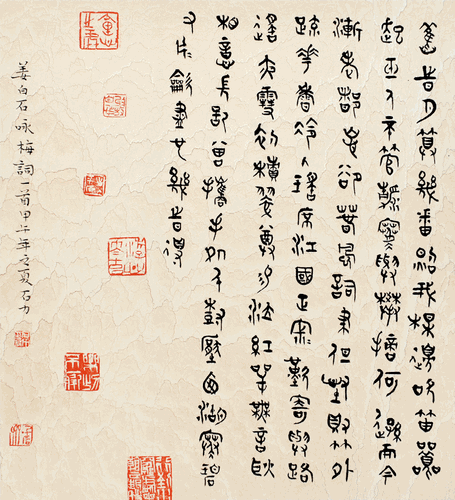 舊旹月算幾番照我楳邊吹笛喚
起玉人不管清寒與攀摘何遜而今
漸老都忘卻春風詞筆但怪得竹外
疏花香冷入瑤席江國正寂歎寄與路
遙夜雪初積翠尊易泣紅萼無言耿
相意長記曾攜手処千樹壓西湖寒碧
又片吹盡也幾旹得
姜白石咏梅詞一首甲午年之夏石力